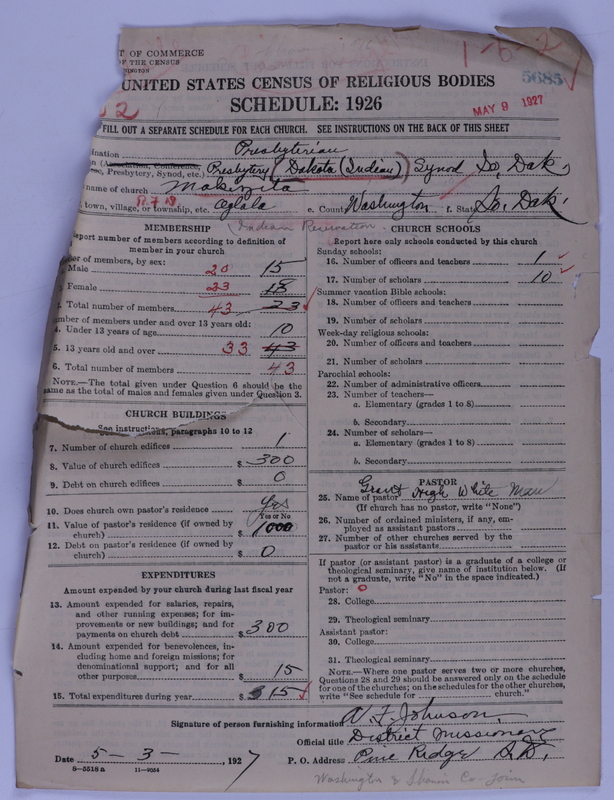 T OF COMMERCE
OF THE CENSUS
INGTON
1-6-2
5685
UNITED STATES CENSUS OF RELIGIOUS BODIES
SCHEDULE: 1926
MAY 9 1927
2
FILL OUT A SEPARATE SCHEDULE FOR EACH CHURCH. SEE INSTRUCTIONS ON THE BACK OF THIS SHEET
ination Presbyterian
n (Association, Conference,
se, Presbytery, Synod, etc.) Presbytery (Dakota (Indian)) Synod So, Dak,
name of church Makizita
town, village, or township, etc. Oglala e. County Washington f. State So, Dak,
Indian Reservation
MEMBERSHIP
eport number of members according to definition of
member in your church
er of members, by sex:
Male 20 15
Female 23 18
Total number of members 43 23
umber of members under and over 13 years old:
4. Under 13 years of age 10
5. 13 years old and over 33 43
6. Total number of members 43
NOTE.—The total given under Question 6 should be the
same as the total of males and females given under Question 3.
CHURCH BUILDINGS
See instructions, paragraphs 10 to 12
7. Number of church edifices 1
8. Value of church edifices $ 300
9. Debt on church edifices $ 0
10. Does church own pastor's residence Yes
Yes or No
11. Value of pastor's residence (if owned by
church) $ 1000
12. Debt on pastor's residence (if owned by
church) $ 0
EXPENDITURES
Amount expended by your church during last fiscal year
13. Amount expended for salaries, repairs,
and other running expenses; for im-
provements or new buildings; and for
payments on church debt $ 300
14. Amount expended for benevolences, in-
cluding home and foreign missions; for
denominational support; and for all
other purposes $ 15
15. Total expenditures during year $ 315
CHURCH SCHOOLS
Report here only schools conducted by this church
Sunday schools:
16. Number of officers and teachers 1
17. Number of scholars 10
Summer vacation Bible schools:
18. Number of officers and teachers
19. Number of scholars
Week-day religious schools:
20. Number of officers and teachers
21. Number of scholars
Parochial schools:
22. Number of administrative officers
23. Number of teachers—
a. Elementary (grades 1 to 8)
b. Secondary
24. Number of scholars—
a. Elementary (grades 1 to 8)
b. Secondary
PASTOR
25. Name of pastor Grant High White Man
(If church has no pastor, write "None")
26. Number of ordained ministers, if any, em-
ployed as assistant pastors
27. Number of other churches served by the
pastor or his assistants
If pastor (or assistant pastor) is a graduate of a college or
theological seminary, give name of institution below. (If
not a graduate, write "No" in the space indicated.)
Pastor: o
28. College
29. Theological seminary
Assistant pastor:
30. College
31. Theological seminary
NOTE.—Where one pastor serves two or more churches,
Questions 28 and 29 should be answered only on the schedule
for one of the churches; on the schedules for the other churches,
write "See schedule for church."
Signature of person furnishing information A F Johnson,
Official title District Missionary
Date 5-3-, 1927 P. O. Address Pine Ridge S.D.
8—5518 a 11—9054
Washington & Shannon Co—Join